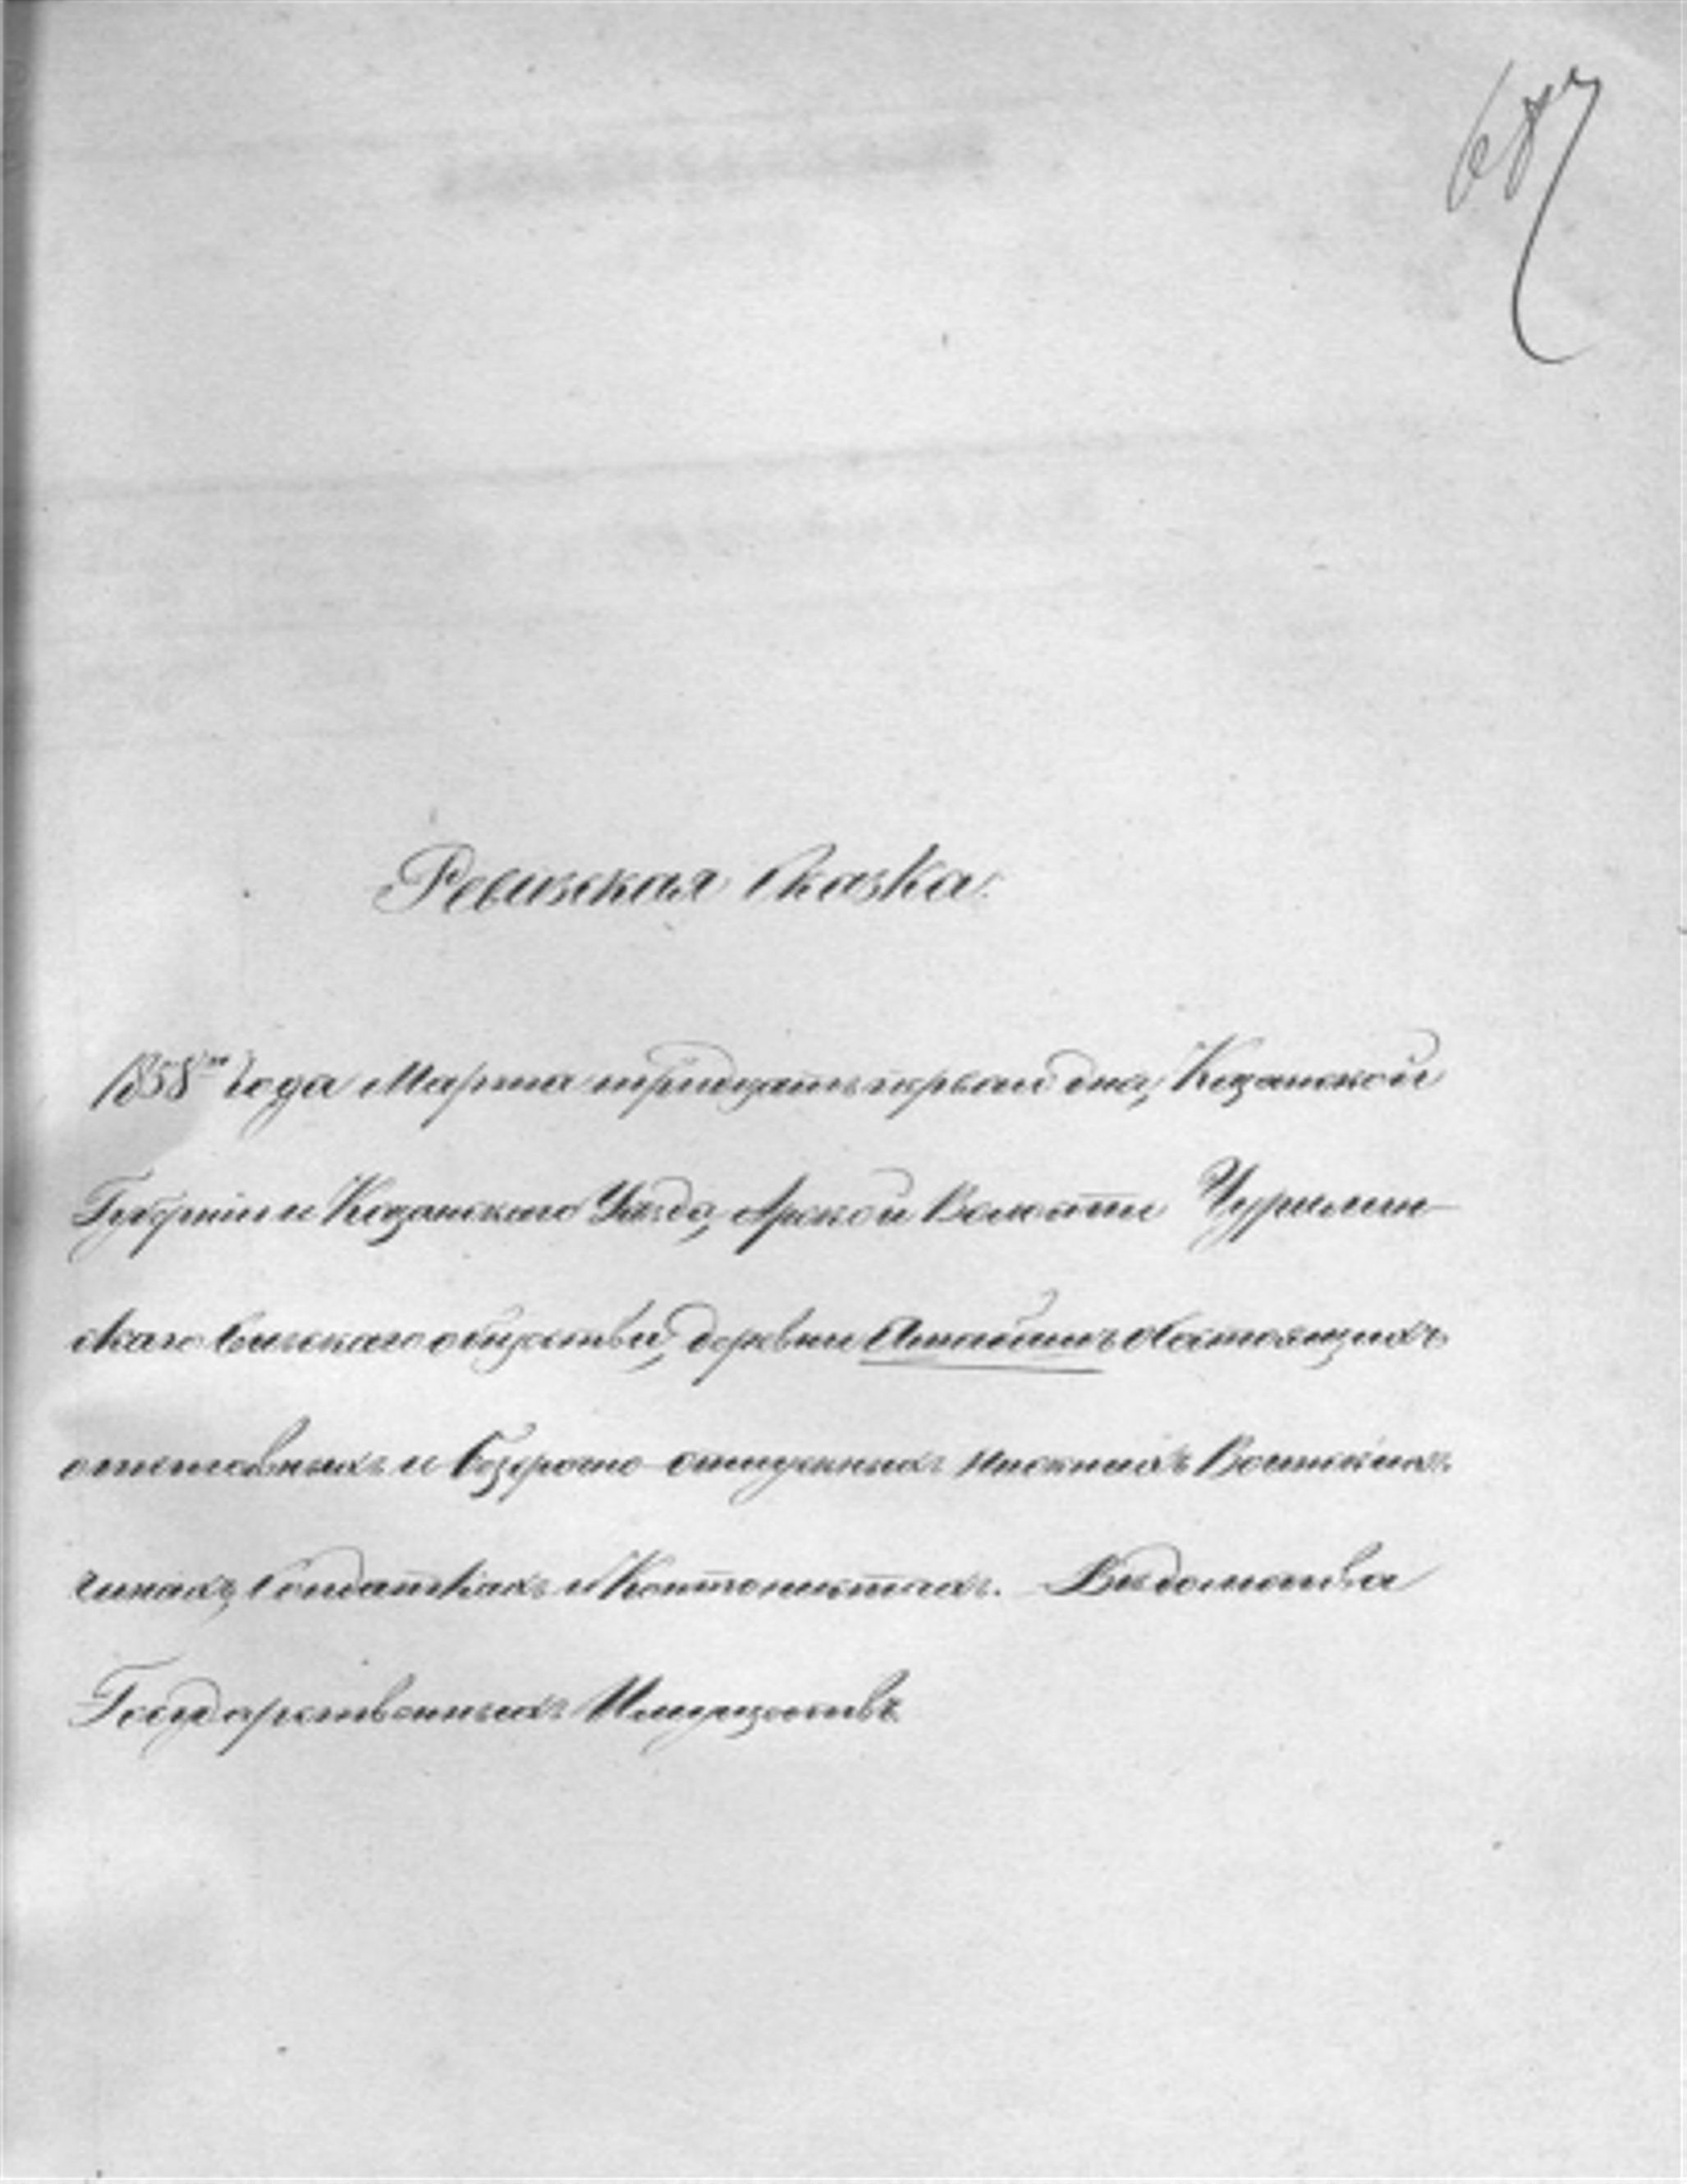 Ревизская Сказка.
1858го года Марта тридцать перваго дня, Казанской
Губерніи и Казанскаго Уѣзда, Арской Волости Чурилин-
скаго Сельскаго общества, деревни о состоящихъ
отставныхъ и безсрочно-отпускныхъ нижнихъ Воинскихъ
чинахъ, Солдаткахъ и Кантонистахъ. Вѣдомства
Государственныхъ Имуществъ.